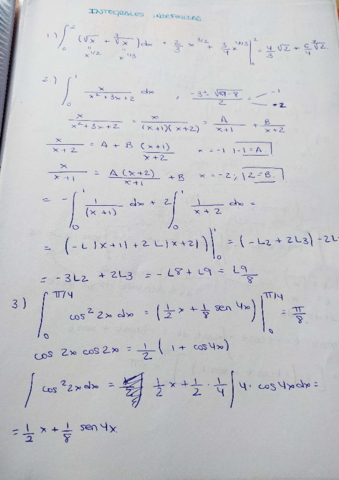 INTEGRALES INDEFINIDAS
1.) ∫₀² (√x + ∛x) dx = 2/3 x^3/2 + 3/4 x^4/3 |₀² = 4/3 √2 +
x^1/2 x^1/3
2.) ∫₀¹ x/(x²+3x+2) dx , (-3 ± √(9-8))/2 = -1
x/(x²+3x+2) = x/((x+1)(x+2)) = A/(x+1) + B/(x+2)
x/(x+2) = A + B (x+1)/(x+2) x = -1 | -1 = A |
x/(x+1) = A(x+2)/(x+1) + B x = -2; | 2 = B |
= -∫₀¹ 1/(x+1) dx + 2∫₀¹ 1/(x+2) dx =
= (-L|x+1| + 2L|x+2|) |₀¹ = (-L2 + 2L3) - 2L
= -3L2 + 2L3 = -L8 + L9 = L 9/8
3) ∫₀^π/4 cos² 2x dx = (1/2 x + 1/8 sen 4x) |₀^π/4 = π/8
cos 2x cos 2x = 1/2 (1 + cos 4x)
∫ cos² 2x dx = 1/2 x + 1/2 · 1/4 ∫ 4 · cos 4x dx =
= 1/2 x + 1/8 sen 4x